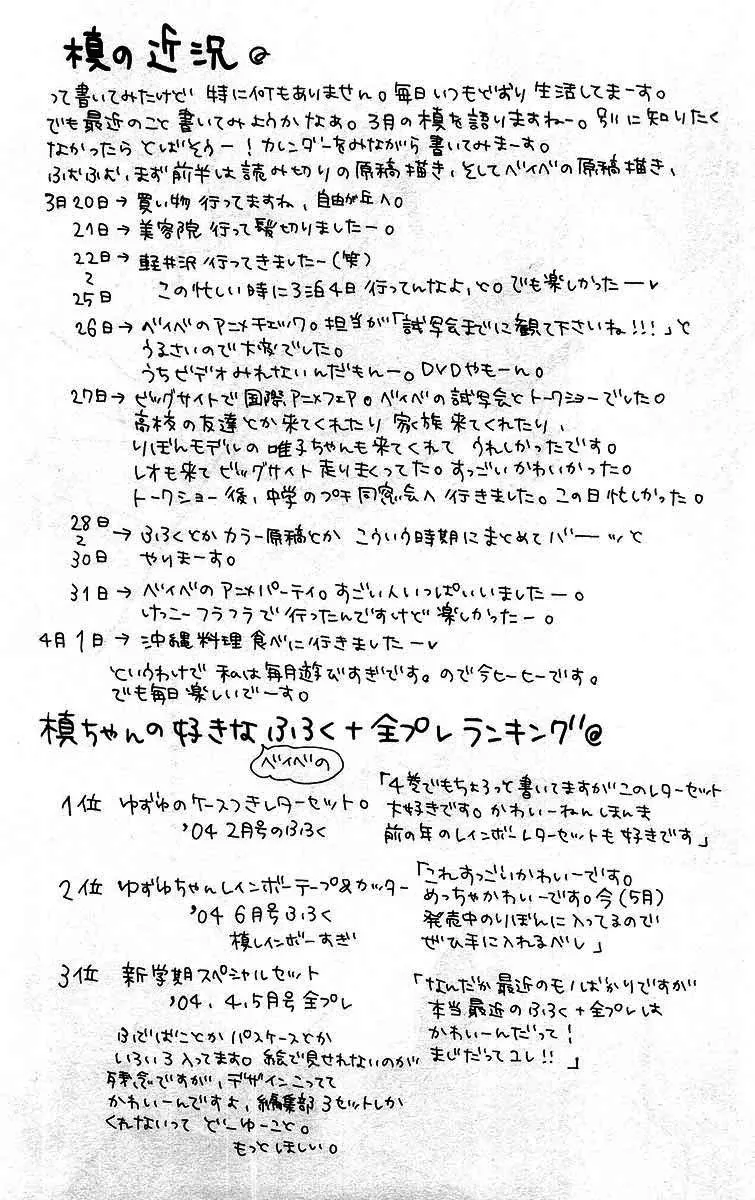 槙の近況@
って書いてみたけど 特に何もありません。毎日いつもどおり 生活してまーす。
でも最近のこと書いてみようかなぁ。3月の槙を語りますねー。別に知りたく
なかったら とばそうー！カレンダーをみながら書いてみまーす。
ふむふむ、まず前半は読み切りの原稿描き、そしてベイベの原稿描き、
3月20日→ 買い物 行ってますね、自由が丘へ。
21日→ 美容院 行って髪切りましたー。
22日→ 軽井沢 行ってきましたー(笑)
〜
25日 この忙しい時に3泊4日 行ってんなよ、と。でも楽しかったー♥
26日→ ベイベのアニメチェック。担当が「試写会までに観て下さいね!!!」と
うるさいので大変でした。
うちビデオみれないんだもんー。DVDやもーん。
27日→ ビッグサイトで国際アニメフェア。ベイベの試写会とトークショーでした。
高校の友達とか来てくれたり 家族来てくれたり、
りぼんモデルの 唯子ちゃんも来てくれて うれしかったです。
レオも来てビッグサイト走りまくってた。すっごいかわいかった。
トークショー後、中学のプチ同窓会へ行きました。この日忙しかった。
28日
〜 → ふろくとか カラー原稿とか こういう時期にまとめてバーーッと
30日 やりまーす。
31日→ ベイベのアニメパーティ。すごい人いっぱいいましたー。
けっこーフラフラで行ったんですけど 楽しかったー。
4月1日→ 沖縄料理 食べに行きましたー♥
というわけで 私は毎月遊びすぎです。ので今ヒーヒーです。
でも毎日楽しいでーす。
槙ちゃんの好きなふろく+全プレランキング@
ベイベの
1位 ゆずゆのケースつきレターセット。
'04 2月号のふろく
「4巻でもちょろっと書いてますがこのレターセット
大好きです。かわいーねんほんま
前の年のレインボーレターセットも好きです」
2位 ゆずゆちゃんレインボーテープ&カッター
'04 6月号ふろく
槙レインボーすぎ
「これすっごいかわいーです。
めっちゃかわいーです。今(5月)
発売中のりぼんに入ってるので
ぜひ手に入れるべし」
3位 新学期スペシャルセット
'04. 4.5月号 全プレ
「なんだか最近のモノばかりですが
本当最近のふろく+全プレは
かわいーんだって!
まじだってコレ!!」
ふでばことか パスケースとか
いろいろ入ってます。絵で見せれないのが
残念ですが、デザインこってて
かわいーんですよ、編集部3セットしか
くれないって どーゆーこと。
もっとほしい。